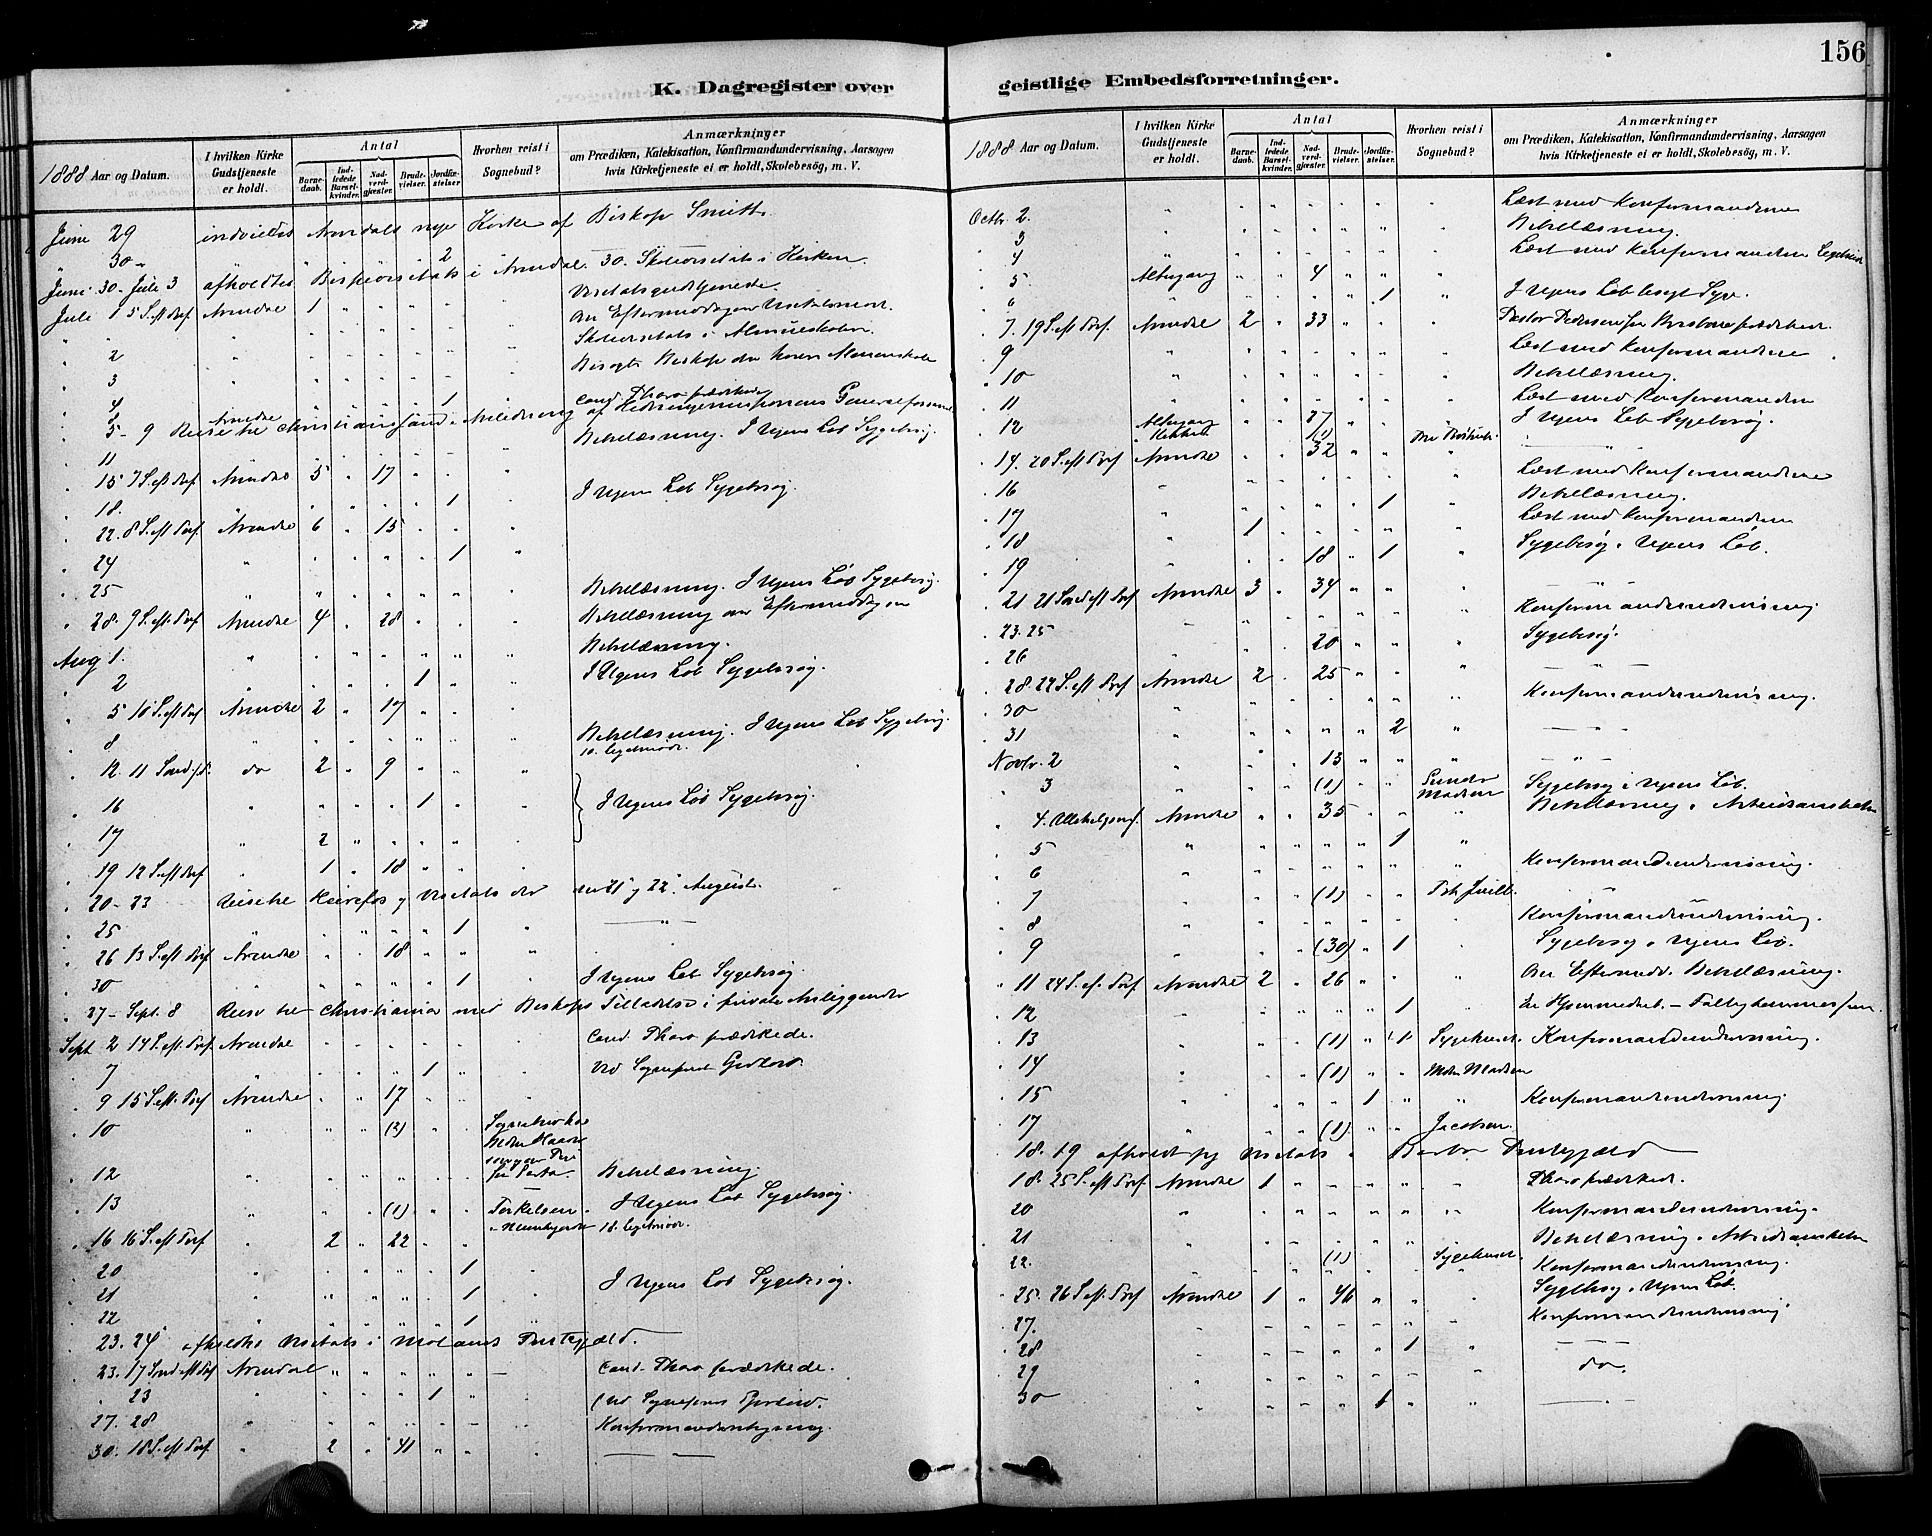 156
K. Dagregister over
geistlige Embedsforretninger.
1888 Aar og Datum. I hvilken Kirke Gudstjeneste er holdt. Antal Barnedaab. Indledede Barselkvinder. Nadverdgjæster. Brudevielser. Jordfæstelser Hvorhen reist i Sognebud? Anmærkninger om Prædiken, Katekisation, Konfirmandundervisning, Aarsagen hvis Kirketjeneste ei er holdt, Skolebesög, m. V.
Juni 29 indviedes Arendals nye Kirke af Biskop Smitt.
" 30 " 2
Juni 30 - Juli 3 afholdtes Bispevisitats i Arendal. 30. Skolevisitats i Kirken
Juli 1 5 S. eft Tref Arendal 1 " " " " " Visitatsgudstjeneste.
" " " " " " " Skolevisitats i Almueskolen.
" 2 " " " " " "
" 3 " " " " " "
" 4 " " " " 1 "
5 - 9 Reise til Christiansand i Anledning af Hedningemissionens Generalforsaml
" 11 " " " " " " Bibellæsning. I Ugens Løb Sygebesøg.
" 15 7 S. eft Tref Arendal 5 " 17 " " "
" 18. " " " " 1 " I Ugens Løb Sygebesøg.
" 22. 8 S. eft Tref. Arendal 6 " 15 " " "
" 24 " " " " " 1 "
" 25 " " " " " " " Bibellæsning. I Ugens Løb Sygebesøg.
" 28. 9 S. eft. Tref. Arendal 4 " 28 " " " Bibellæsning om Eftermiddagen
Aug 1. " " " " " " " Bibellæsning.
" 2 " " " " 1 " " I Ugens Løb Sygebesøg.
" 5 10 S. eft Tref Arendal 2 " 17 " " "
" 8 " " " " " " " Bibellæsning. I Ugens Løb Sygebesøg
" 12. 11 Sönd. do 2 " 9 " " "
" 16 " " " " 1 " " I Ugens Løb Sygebesøg.
" 17 " 2 " " " " "
" 19 12 S. eft Tref " 1 " 18 " " "
" 20 - 23 Reise til og Visitats der den 21 og 22 August.
" 25 " " " " " 1 " — " —
" 26 13 S. eft Tref Arendal " " 18 " " "
" 30 " " " " " 1 " I Ugens Løb Sygebesøg.
" 27 - Sept. 8 Reise til Christiania med Biskops Tilladelse i private Anliggender
Sept 2 14 S. eft. Tref. Arendal " " " " " " Cand. Tharo prædikede.
" 7 " " " " 1 " "
" 9 15 S. eft. Tref Arendal " " 17 " " "
" 10 " " " (2) " "
" 12 " " " " " " Bibellæsning.
" 13 " " " (1) " " Terkelsen. I Ugens Løb Sygebesøg.
" 16 16 S. eft Tref " 2 " 22 " "
" 20 " " " " " 1 "
" 21 " " " " " 1 " I Ugens Løb Sygebesøg.
" 22 " " " " " 1 "
" 23. 24 afholdtes Visitats i Molands Præstegjæld.
" 23. 17 Sönd eft Tref Arendal " " " " " — Cand. Tharo prædikede.
" 23 " " " " 1 " "
27. 28 " " " " " " "
30. 18 S. eft Tref. " 2 " 41 " " " — " —
1888 Aar og Datum. I hvilken Kirke Gudstjeneste er holdt. Antal Barnedaab. Indledede Barselkvinder. Nadverdgjæster. Brudevielser. Jordfæstelser. Hvorhen reist i Sognebud? Anmærkninger om Prædiken, Katekisation, Konfirmandundervisning, Aarsagen hvis Kirketjeneste ei er holdt, Skolebesög, m. V.
Octbr. 2. " " " " " " " Læst med Konfirmanderne
" 3 " " " " " " " Bibellæsning.
" 4 " " " " " " " Læst med Konfirmanderne
" 5 Altergang " " 4 " " "
" 6 " " " " " 1 " I Ugens Løb besøgt Syge.
" 7. 19 S. eft Tref. Arendal 2 " 33 " " "
" 9 " " " " " " " Læst med Konfirmanderne
" 10 " " " " " " " Bibellæsning.
" 11 " " " " " " " Læst med Konfirmanderne
" 12 Altergang " " 27 " " " I Ugens Løb Sygebesøg.
" 14. 20 S. eft Tref Arendal " " 32 " " "
" 16 " " " " " " " Læst med Konfirmanderne
" 17 " " " " " 1 " Bibellæsning.
" 18 " 1 " " " " " Læst med Konfirmanderne
" 19 " " " 18 " 1 " Sygebesøg i Ugens Løb.
" 21 21 Sönd eft Tref Arendal 3 " 34 " " " — " —
" 23. 25 " " " " " " " Konfirmandundervisning.
" 26 " " " 20 " " " Sygebesøg.
" 28. 22 S. eft Tref Arendal 2 " 25 " " " — " —
" 30 " " " " " " " Konfirmandundervisning.
" 31 " " " " " 2 " — " —
Novbr. 2 " " " 13 " " "
" 3 " " " (1) " " Madsen Sygebesøg i Ugens Løb.
" 4. Allehelgensf. Arendal " " 35 " " " Bibellæsning i Arbeidsanstalten
" 5 " " " " " 1 "
" 6 " " " " " " " Konfirmandundervisning.
" 7 " " " (1) " " "
" 8 " " " " " " " Konfirmandundervisning.
" 9 " " " (30) " 1 " Sygebesøg i Ugens Løb.
" 11 24 S. ef. Tref. Arendal 2 " 26 " " " Om Eftermidd. Bibellæsning.
" 12 " " " " " 1 "
" 13 " " " (1) " 1 Sygehuset. Konfirmandundervisning.
" 14 " " " (1) " " Madsen
" 15 " " " " 1 " " Konfirmandundervisning.
" 17 " " " (1) " " Jacobsen.
" 18. 19 afholdt jeg Visitats i Barbo Præstegjæld
" 18. 25 S. eft Tref Arendal 1 " " " " " Tharo prædikede.
" 20 " " " " " " " Konfirmandundervisning.
" 21 " " " " " " " Bibellæsning i Arbeidsanstalten
" 22. " " " (1) " " Sygehuset. Konfirmandundervisning.
" 25. 26 S. eft. Tref Arendal 1 " 46 " " " Sygebesøg i Ugens Løb.
" 27. " " " " " " " Konfirmandundervisning
" 28 " " " " " 1 " — " —
" 29 " " " " " " " do.
" 30 " " " " 1 " " — " —